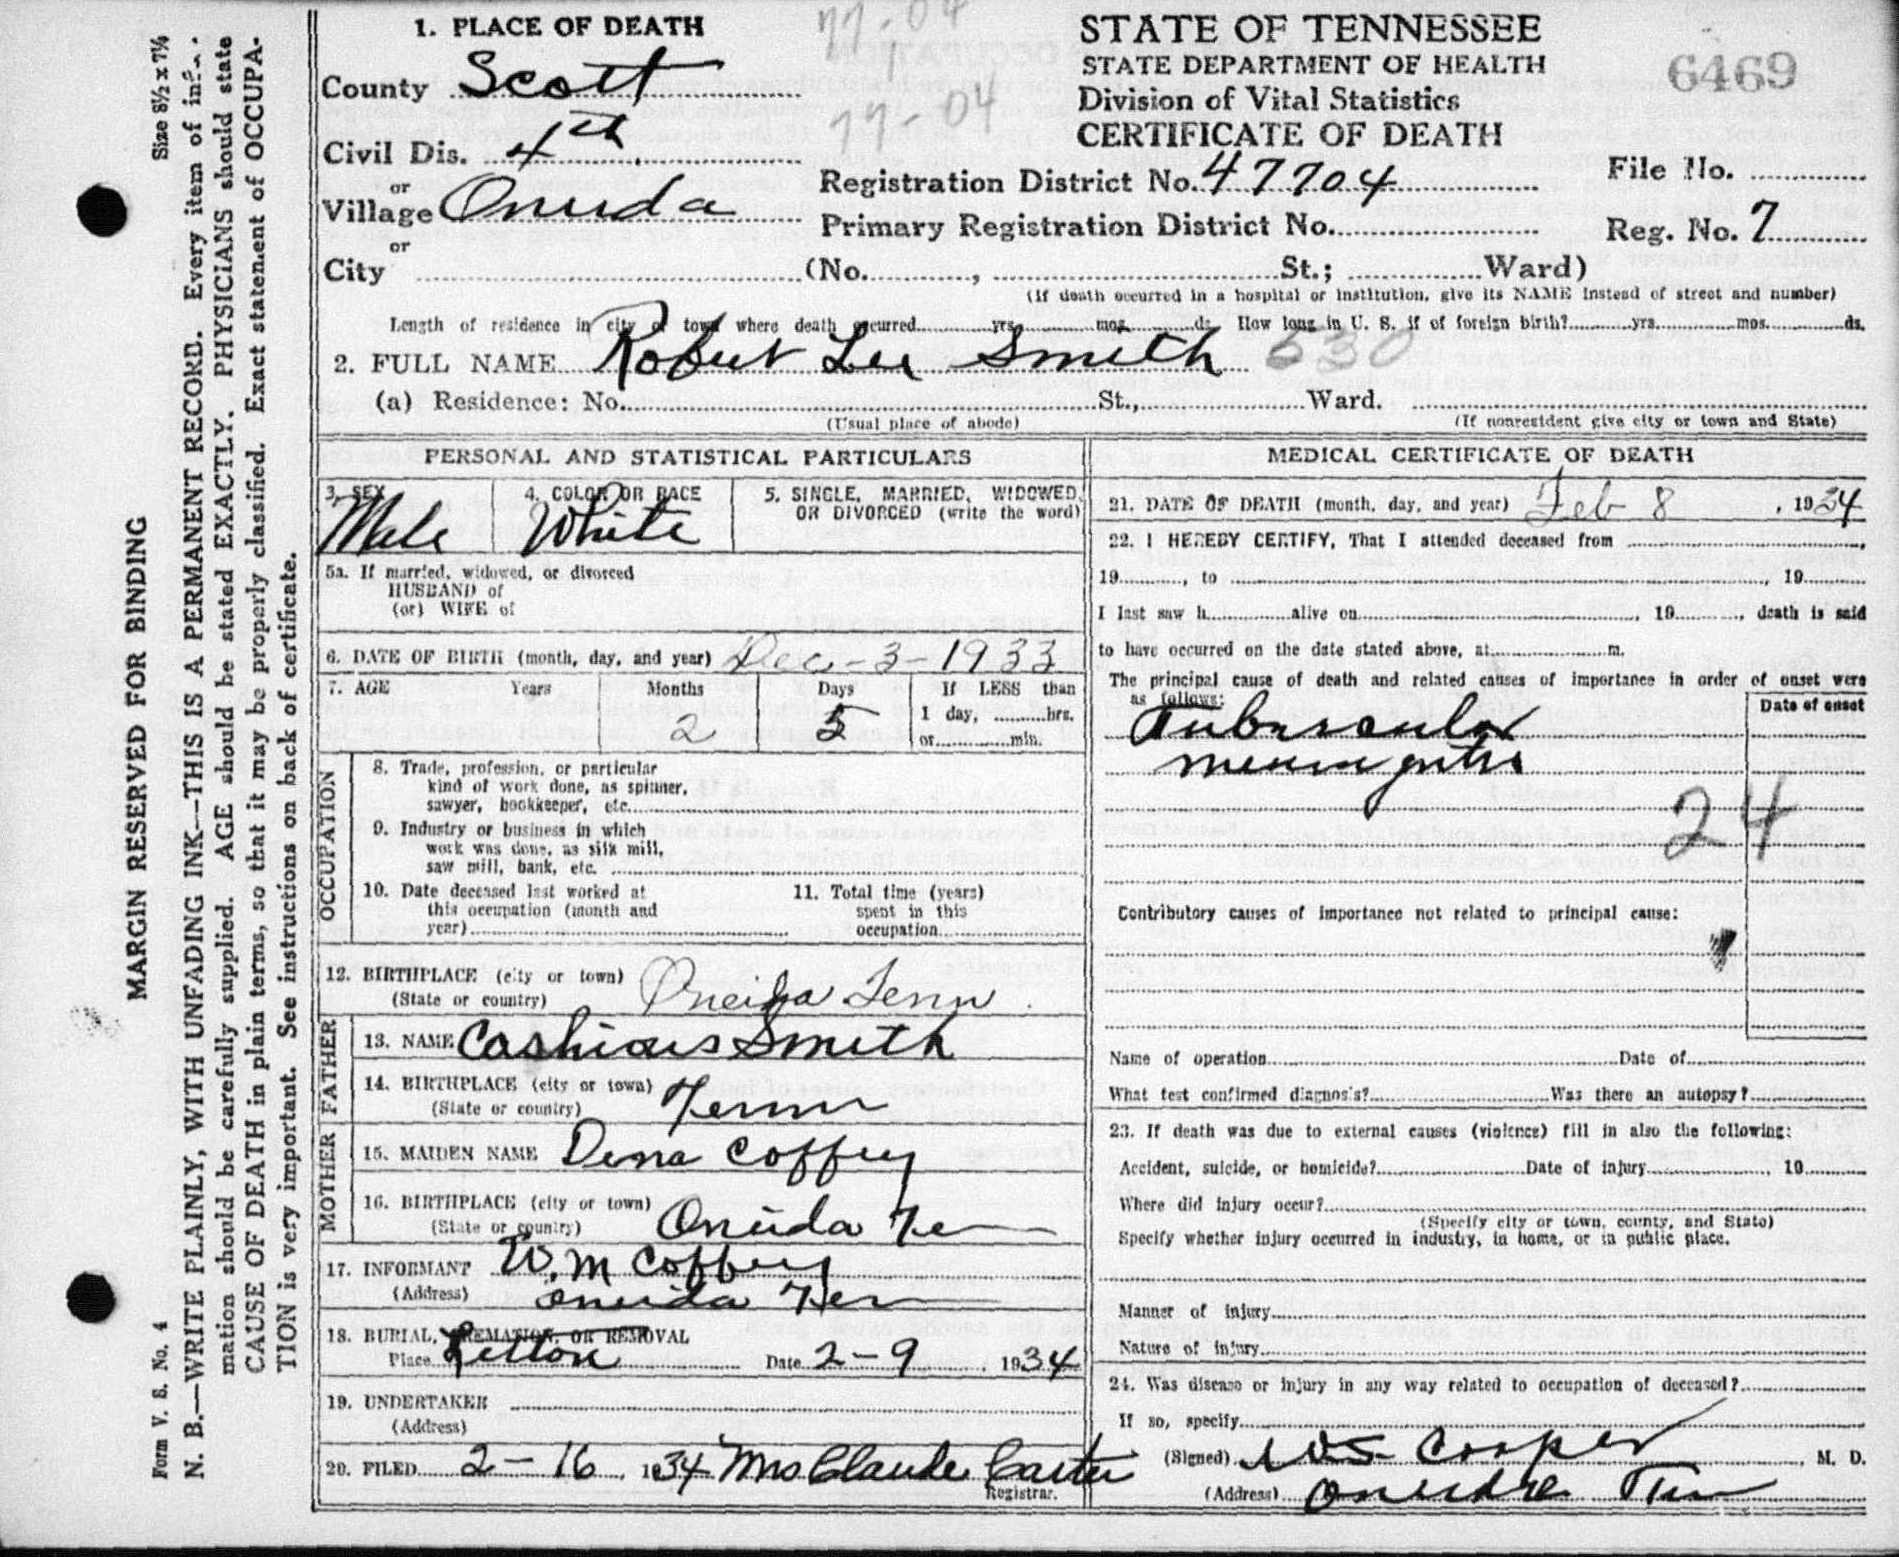 Size 8½ x 7¼
MARGIN RESERVED FOR BINDING
N. B.—WRITE PLAINLY, WITH UNFADING INK—THIS IS A PERMANENT RECORD. Every item of infor-
mation should be carefully supplied. AGE should be stated EXACTLY. PHYSICIANS should state
CAUSE OF DEATH in plain terms, so that it may be properly classified. Exact statement of OCCUPA-
TION is very important. See instructions on back of certificate.
Form V. S. No. 4
77-04
77-04
STATE OF TENNESSEE
STATE DEPARTMENT OF HEALTH
Division of Vital Statistics
CERTIFICATE OF DEATH
6469
1. PLACE OF DEATH
County Scott
Civil Dis. 4th
or
Village Oneida
or
City (No. , St.; Ward)
Registration District No. 47704
File No.
Primary Registration District No.
Reg. No. 7
(If death occurred in a hospital or institution, give its NAME instead of street and number)
Length of residence in city or town where death occurred yrs. mos. ds. How long in U. S. if of foreign birth? yrs. mos. ds.
2. FULL NAME Robert Lee Smith 530
(a) Residence: No. St., Ward.
(Usual place of abode) (If nonresident give city or town and State)
PERSONAL AND STATISTICAL PARTICULARS
3. SEX Male
4. COLOR OR RACE White
5. SINGLE, MARRIED, WIDOWED, OR DIVORCED (write the word)
5a. If married, widowed, or divorced
HUSBAND of
(or) WIFE of
6. DATE OF BIRTH (month, day, and year) Dec-3-1933
7. AGE Years Months Days If LESS than
2 5 1 day, hrs.
or min.
OCCUPATION
8. Trade, profession, or particular
kind of work done, as spinner,
sawyer, bookkeeper, etc.
9. Industry or business in which
work was done, as silk mill,
saw mill, bank, etc.
10. Date deceased last worked at
this occupation (month and
year)
11. Total time (years)
spent in this
occupation
12. BIRTHPLACE (city or town) Oneida Tenn
(State or country)
FATHER
13. NAME Cashiais Smith
14. BIRTHPLACE (city or town) Tenn
(State or country)
MOTHER
15. MAIDEN NAME Dena Coffey
16. BIRTHPLACE (city or town) Oneida Te
(State or country)
17. INFORMANT W. M Coffey
(Address) Oneida Ten
18. BURIAL, CREMATION, OR REMOVAL
Place Date 2-9, 1934
19. UNDERTAKER
(Address)
20. FILED 2-16, 1934 Mrs Claude Carter
Registrar.
MEDICAL CERTIFICATE OF DEATH
21. DATE OF DEATH (month, day, and year) Feb 8, 1934
22. I HEREBY CERTIFY, That I attended deceased from
19 , to , 19
I last saw h alive on , 19 , death is said
to have occurred on the date stated above, at m.
The principal cause of death and related causes of importance in order of onset were
as follows: Date of onset
Tubercular
meningitis
24
Contributory causes of importance not related to principal cause:
Name of operation Date of
What test confirmed diagnosis? Was there an autopsy?
23. If death was due to external causes (violence) fill in also the following:
Accident, suicide, or homicide? Date of injury , 19
Where did injury occur?
(Specify city or town, county, and State)
Specify whether injury occurred in industry, in home, or in public place.
Manner of injury
Nature of injury
24. Was disease or injury in any way related to occupation of deceased?
If so, specify
(Signed) WS Cooper, M. D.
(Address) Oneida Tenn